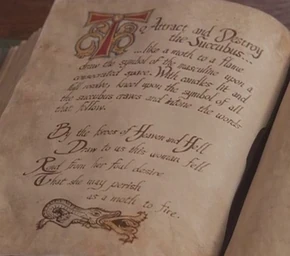 To Attract and Destroy
the Succubus...
...like a moth to a flame
draw the symbol of the masculine upon a
consecrated space. With candles lit and
kneel upon the symbol of all
the succubus craves and intone the words
that follow.
By the power of Heaven and Hell,
Draw to us this woman fell
Rend from her foul desire
That she may perish
as a moth to fire.